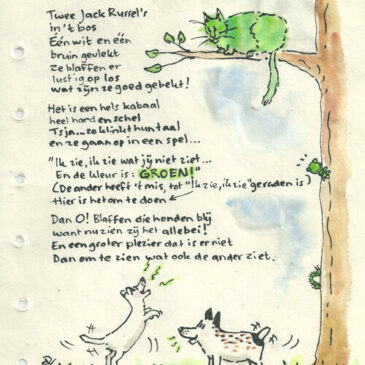 Twee Jack Russel's
in 't bos
Één wit en één
bruin gevlekt
ze blaffen er
lustig op los
wat zijn ze goed gebekt!
Het is een hels kabaal
heel hard en schel
Tsja... zo klinkt hun taal
en ze gaan op in een spel...
"Ik zie, ik zie wat jij niet ziet...
En de kleur is: GROEN!"
(De ander heeft 't mis, tot "Ik zie, ik zie" geraden is)
Hier is het om te doen
Dan O! Blaffen die honden blij
want nu zien zij het allebei!
En een groter plezier dat is er niet
Dan om te zien wat ook de ander ziet.